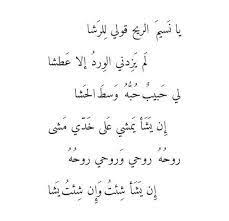 يا نَسيمَ الريح قولي لِلرَشا
لَم يَزِدني الوِردُ إلا عَطشا
لي حَبيبٌ حُبُّهُ وَسطَ الحَشا
إن يَشَأ يَمشي عَلى خَدّي مَشى
روحُهُ روحي وَروحي روحُهُ
إن يَشَأ شِئتُ وَإن شِئتُ يَشا